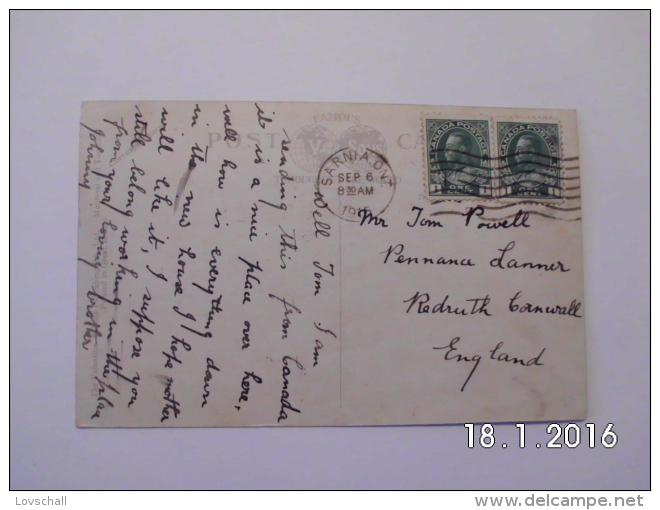 POST CA
FAMOUS
SARNIA. ONT.
SEP 6
8 30 AM
CANADA POSTAGE
ONE
CANADA POSTAGE
Mr Tom Powell
Pennance Lanner
Redruth Cornwall
England
Well Tom I am
sending this from Canada
it is a nice place over here,
well how is everything down
in the new house I hope mother
will like it, I suppose you
still belong working in the plan
from your loving brother
Johnny
18.1.2016
Lovschall
delcampe.net